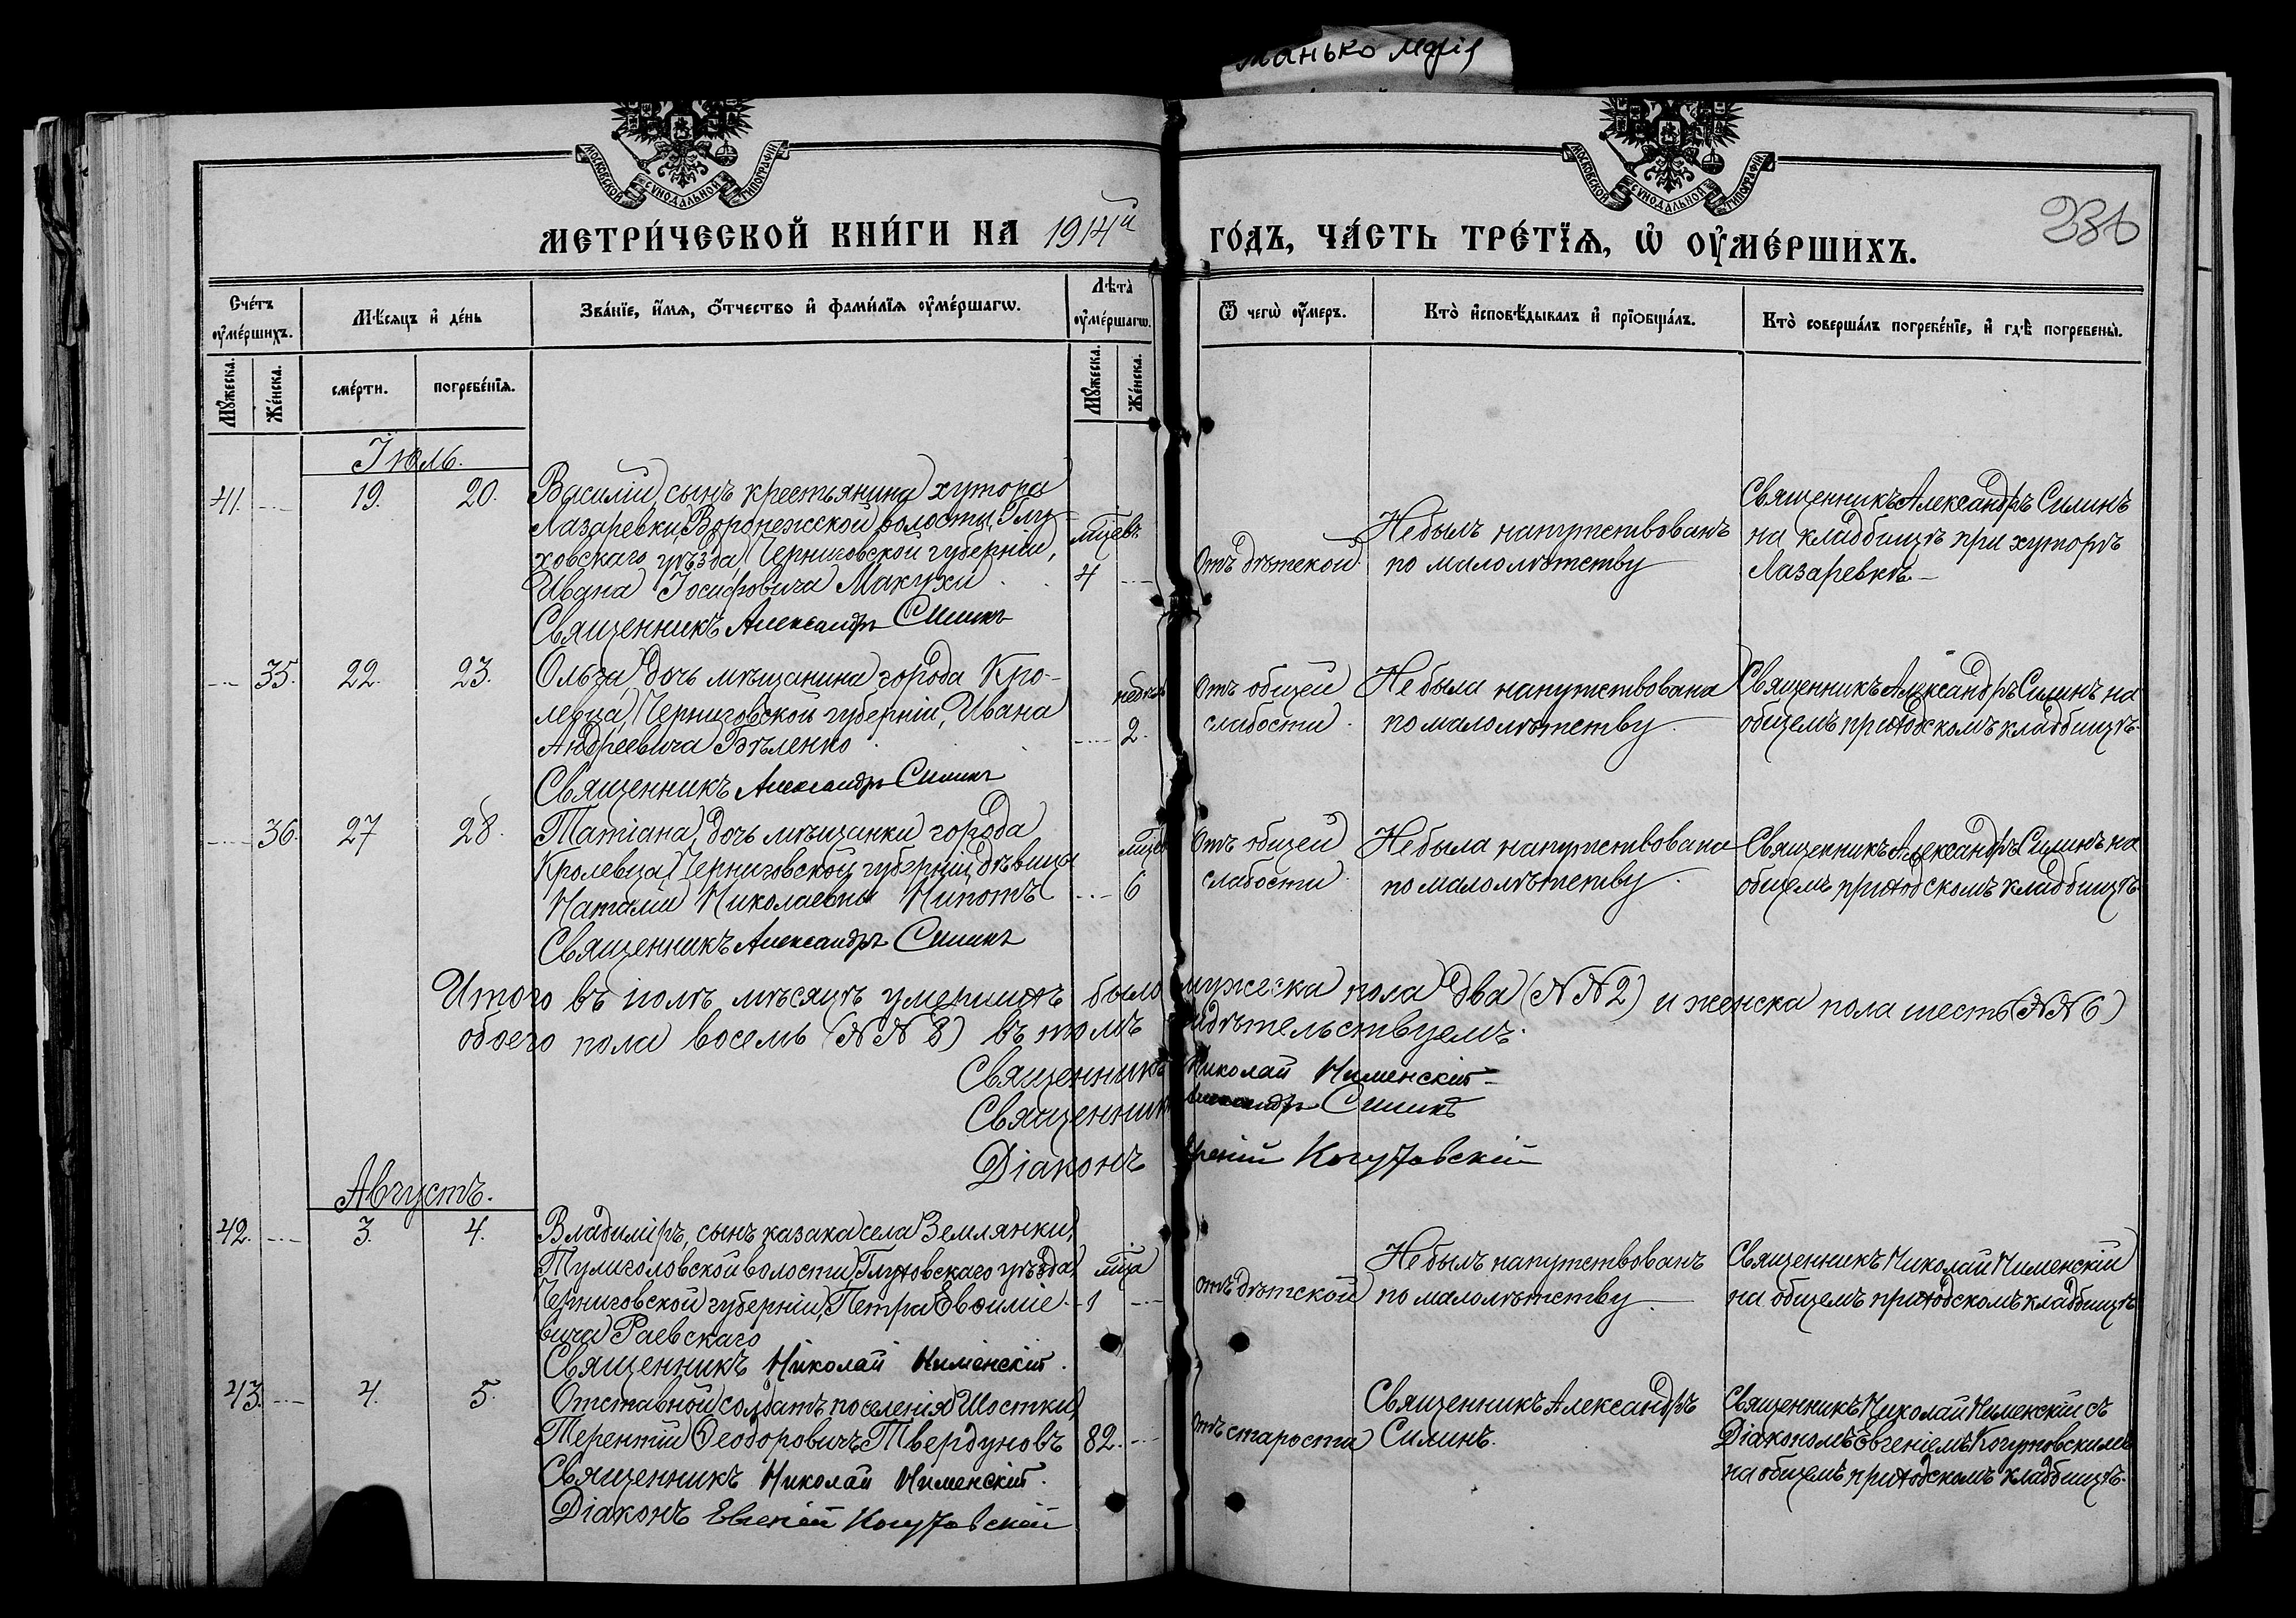 Манько Марія
МОСКОВСКОЙ СѴНОДАЛЬНОЙ ТИПОГРАФІИ
МОСКОВСКОЙ СѴНОДАЛЬНОЙ ТИПОГРАФІИ
МЕТРИ́ЧЕСКОЙ КНИ́ГИ НА 1914й
ГО́ДЪ, ЧА́СТЬ ТРЕ́ТЇѦ, Ѡ҆ ОУ҆МЕ́РШИХЪ.
236
Сче́тъ оу҆ме́ршихъ.
Мѣ́сяцъ и҆ де́нь
Зва́нїе, и҆́мѧ, ѻ҆́тчество и҆ фами́лїѧ оу҆ме́ршагѡ.
Лѣта̀ оу҆ме́ршагѡ.
Ѿ чегѡ̀ оу҆́меръ.
Кто̀ и҆сповѣ́дывалъ и҆ прїѡбща́лъ.
Кто̀ соверша́лъ погребе́нїе, и҆ гдѣ̀ погребены̀.
Мꙋ́жеска.
Же́нска.
сме́рти.
погребе́нїѧ.
Мꙋ́жеска.
Же́нска.
Іюль.
41. 19. 20. Василій, сынъ крестьянина хутора
Лазаревки, Воронежской волости, Глу-
ховскаго уѣзда, Черниговской губерніи,
Ивана Іосифовича Макухи
Священникъ Александръ Силинъ
мцевъ
4
Отъ дѣтской
Не былъ напутствованъ
по малолѣтству
Священникъ Александръ Силинъ
на кладбищѣ при хуторѣ
Лазаревкѣ.
35. 22. 23. Ольга, дочь мѣщанина города Кро-
левца, Черниговской губерніи, Ивана
Андреевича Бѣленко
Священникъ Александръ Силинъ
2.
Отъ общей
слабости.
Не была напутствована
по малолѣтству.
Священникъ Александръ Силинъ на
общемъ приходскомъ кладбищѣ.
36. 27 28. Татіана, дочь мѣщанки города
Кролевца, Черниговской губерніи, дѣвицы
Наталіи Николаевны
Священникъ Александръ Силинъ
6
Отъ общей
слабости.
Не была напутствована
по малолѣтству.
Священникъ Александръ Силинъ на
общемъ приходскомъ кладбищѣ.
Итого въ іюлѣ мѣсяцѣ умершихъ было мужеска пола два (NN 2) и женска пола шесть (NN 6)
обоего пола восемь (NN 8) въ томъ свидѣтельствуемъ.
Священникъ Николай
Священникъ Александръ Силинъ
Діаконъ
Августъ.
42. 3. 4. Владиміръ, сынъ казака села Землянки,
Тулиголовской волости, Глуховскаго уѣзда,
Черниговской губерніи, Петра Евѳиміе-
вича Раевскаго
Священникъ Николай
мца
1
отъ дѣтской
Не былъ напутствованъ
по малолѣтству.
Священникъ Николай
на общемъ приходскомъ кладбищѣ
43. 4. 5. Отставной солдатъ поселенія Шостки,
Терентій Ѳеодоровичъ Твердуновъ
Священникъ Николай
Діаконъ Евгеній
82.
отъ старости
Священникъ Александръ
Силинъ.
Священникъ Николай съ
Діакономъ Евгеніемъ
на общемъ приходскомъ кладбищѣ.